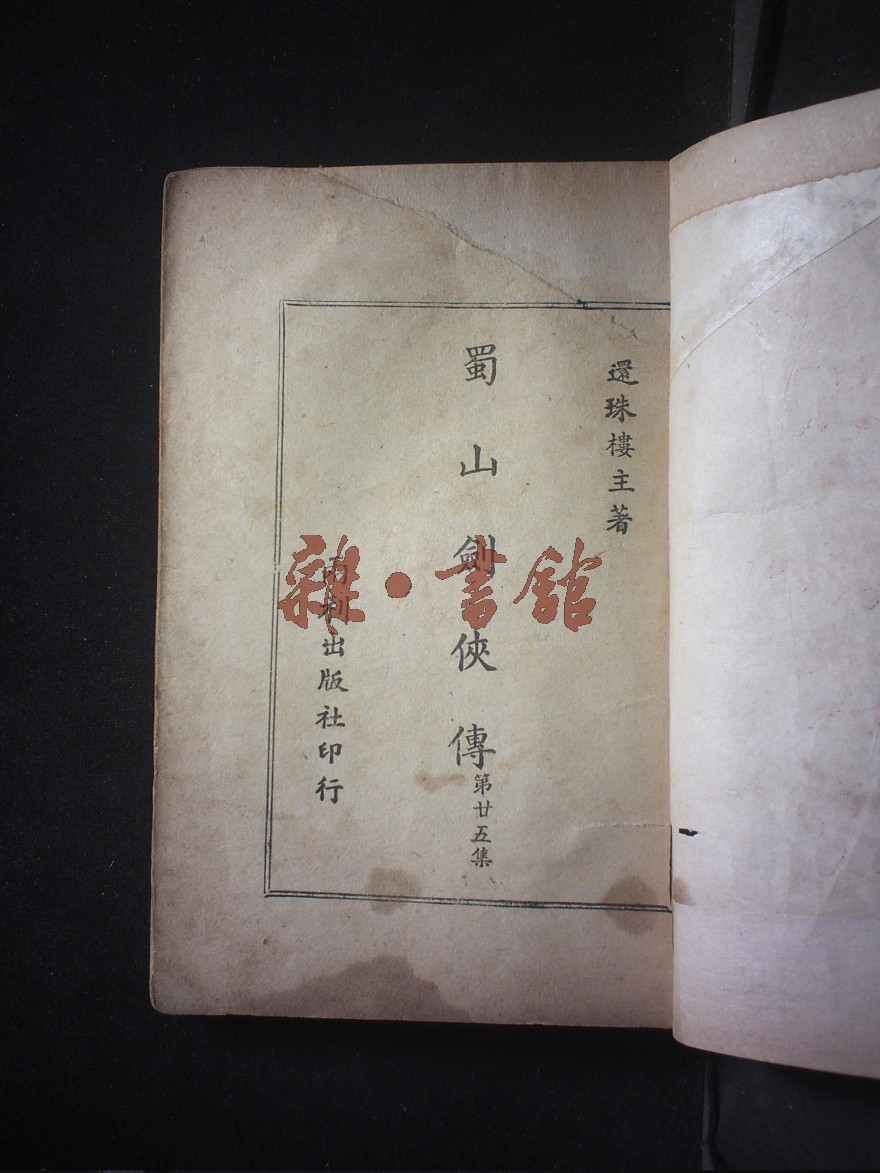 還珠樓主著
蜀山劍俠傳
第廿五集
兩利出版社印行
雜·書館